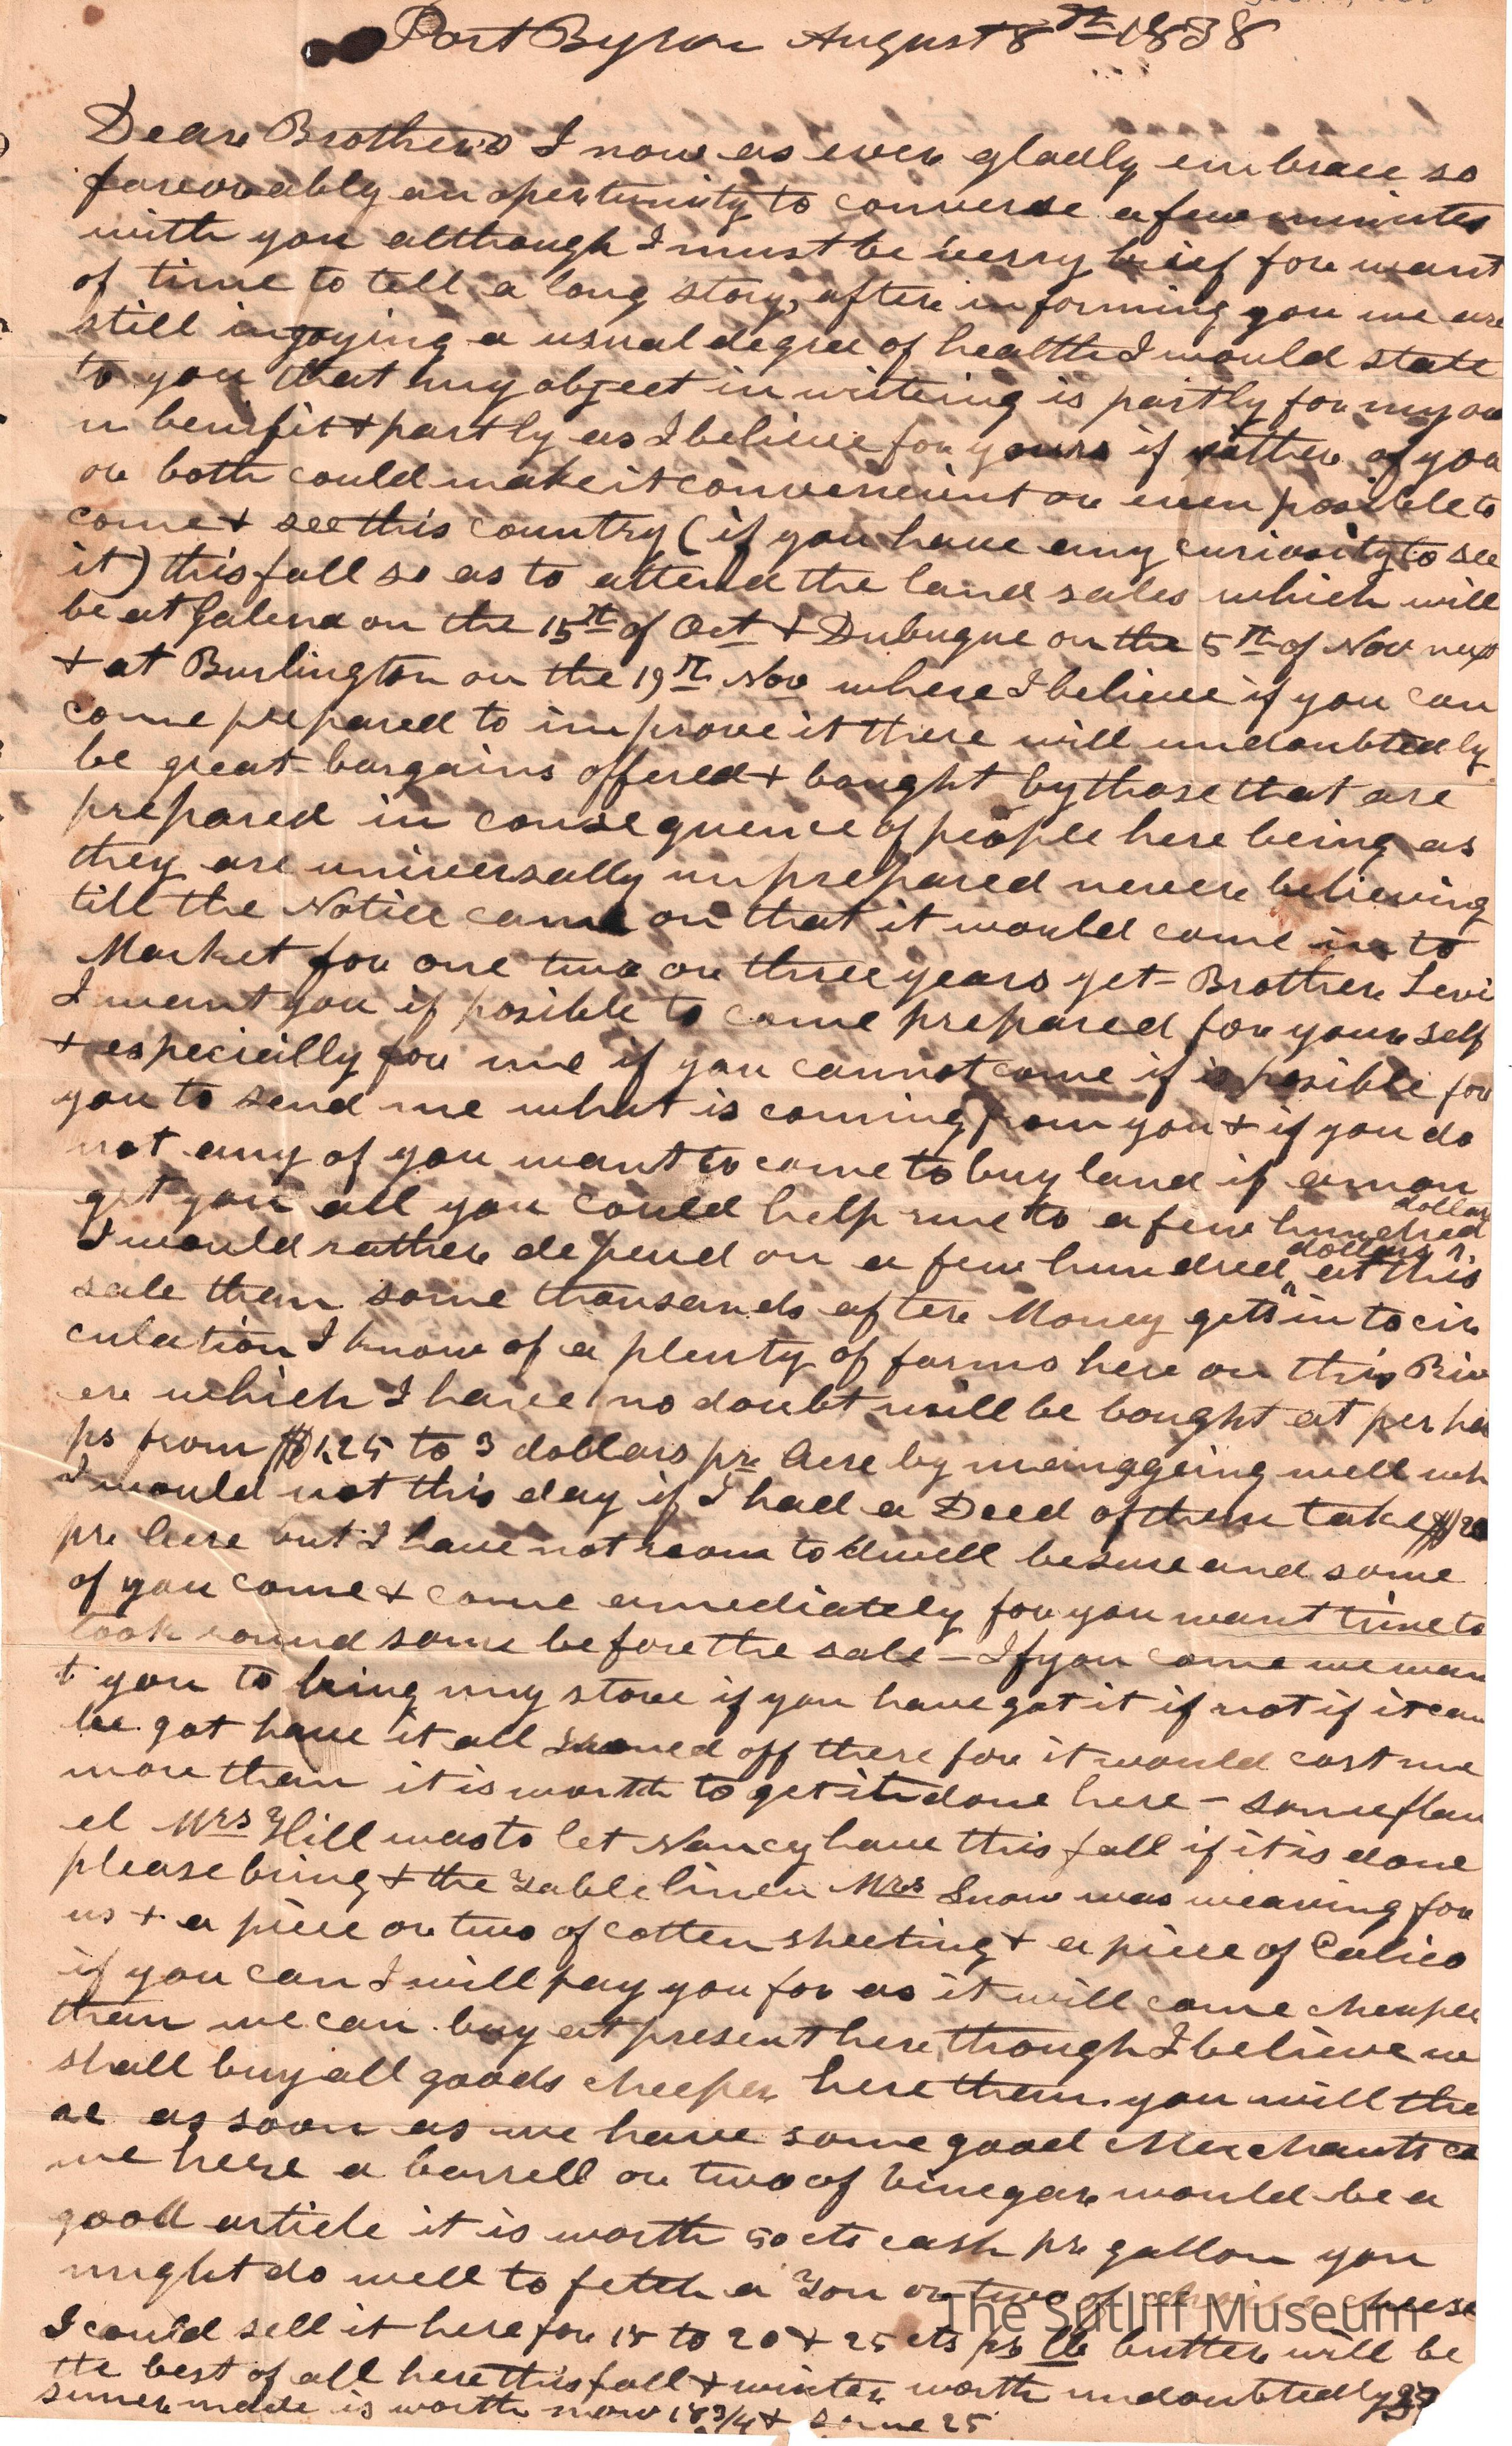 Port Byron August 8th 1838
Dear Brothers I now as ever gladly embrace so
faverorably an opertunity to converse a few minutes
with you although I must be verry brief for want
of time to tell a long story, after informing you we are
still ingoying a usual degree of health I would state
to you that my object in writeing is partly for my ow
n benifit & partly as I believe for yours if either of you
or both could make it convenient or even posible to
come & see this country (if you have any curiosity to see
it) this fall so as to attend the land sales which will
be at Galena on the 15th of Oct & Dubuque on the 5th of Nov next
& at Burlington on the 19th Nov where I believe if you can
come prepared to improve it there will undoubtedly
be great bargains offered & bought by those that are
prepared in consequence of people here being as
they are universally unprepared never believing
till the Notice came on that it would come in to
Market for one two or three years yet - Brother Levi
I want you if posible to come prepared for your self
& especieilly for me if you cannot come if is posible for
you to send me what is coming from you & if you do
not any of you want to come to buy land if a man
get you all you could help me to a few hundred dollars
I would rather depend on a few hundred dollars at this
sale than some thousands after Money gets in to cir
culation I know of a plenty of farms here on this Riv
er which I have no doubt will be bought at per ha
ps from $1.25 to 3 dollars pr Acre by mainggeing well wh
I would not this day if I had a Deed of them take $20
pr Acre but I have not room to dwell besure and some
of you come & come amediately for you want time to
look round some before the sale - If you come we wan
t you to bring my stove if you have got it if not if it can
be got have it all off there for it would cost me
more than it is worth to get it done here - some flan
el Mrs Hill was to let Nancy have this fall if it is done
please bring & the Table linen Mrs Snow was weaving for
us & a piece or two of cotten sheeting & a piece of Calico
if you can I will pay you for as it will come cheaper
than we can buy at present here, though I believe we
shall buy all goods cheeper here than you will the
re as soon as we have some good Merchants co
me here a barrell or two of Vinegar would be a
good article it is worth 50 cts cash pr gallon you
might do well to fetch a Ton or two of cheese
I could sell it here for 15 to 20 & 25 cts pr lb butter will be
the best of all here this fall & winter worth undoubtedly
sumer made is worth now 18 3/4 & some 25
The Sutliff Museum